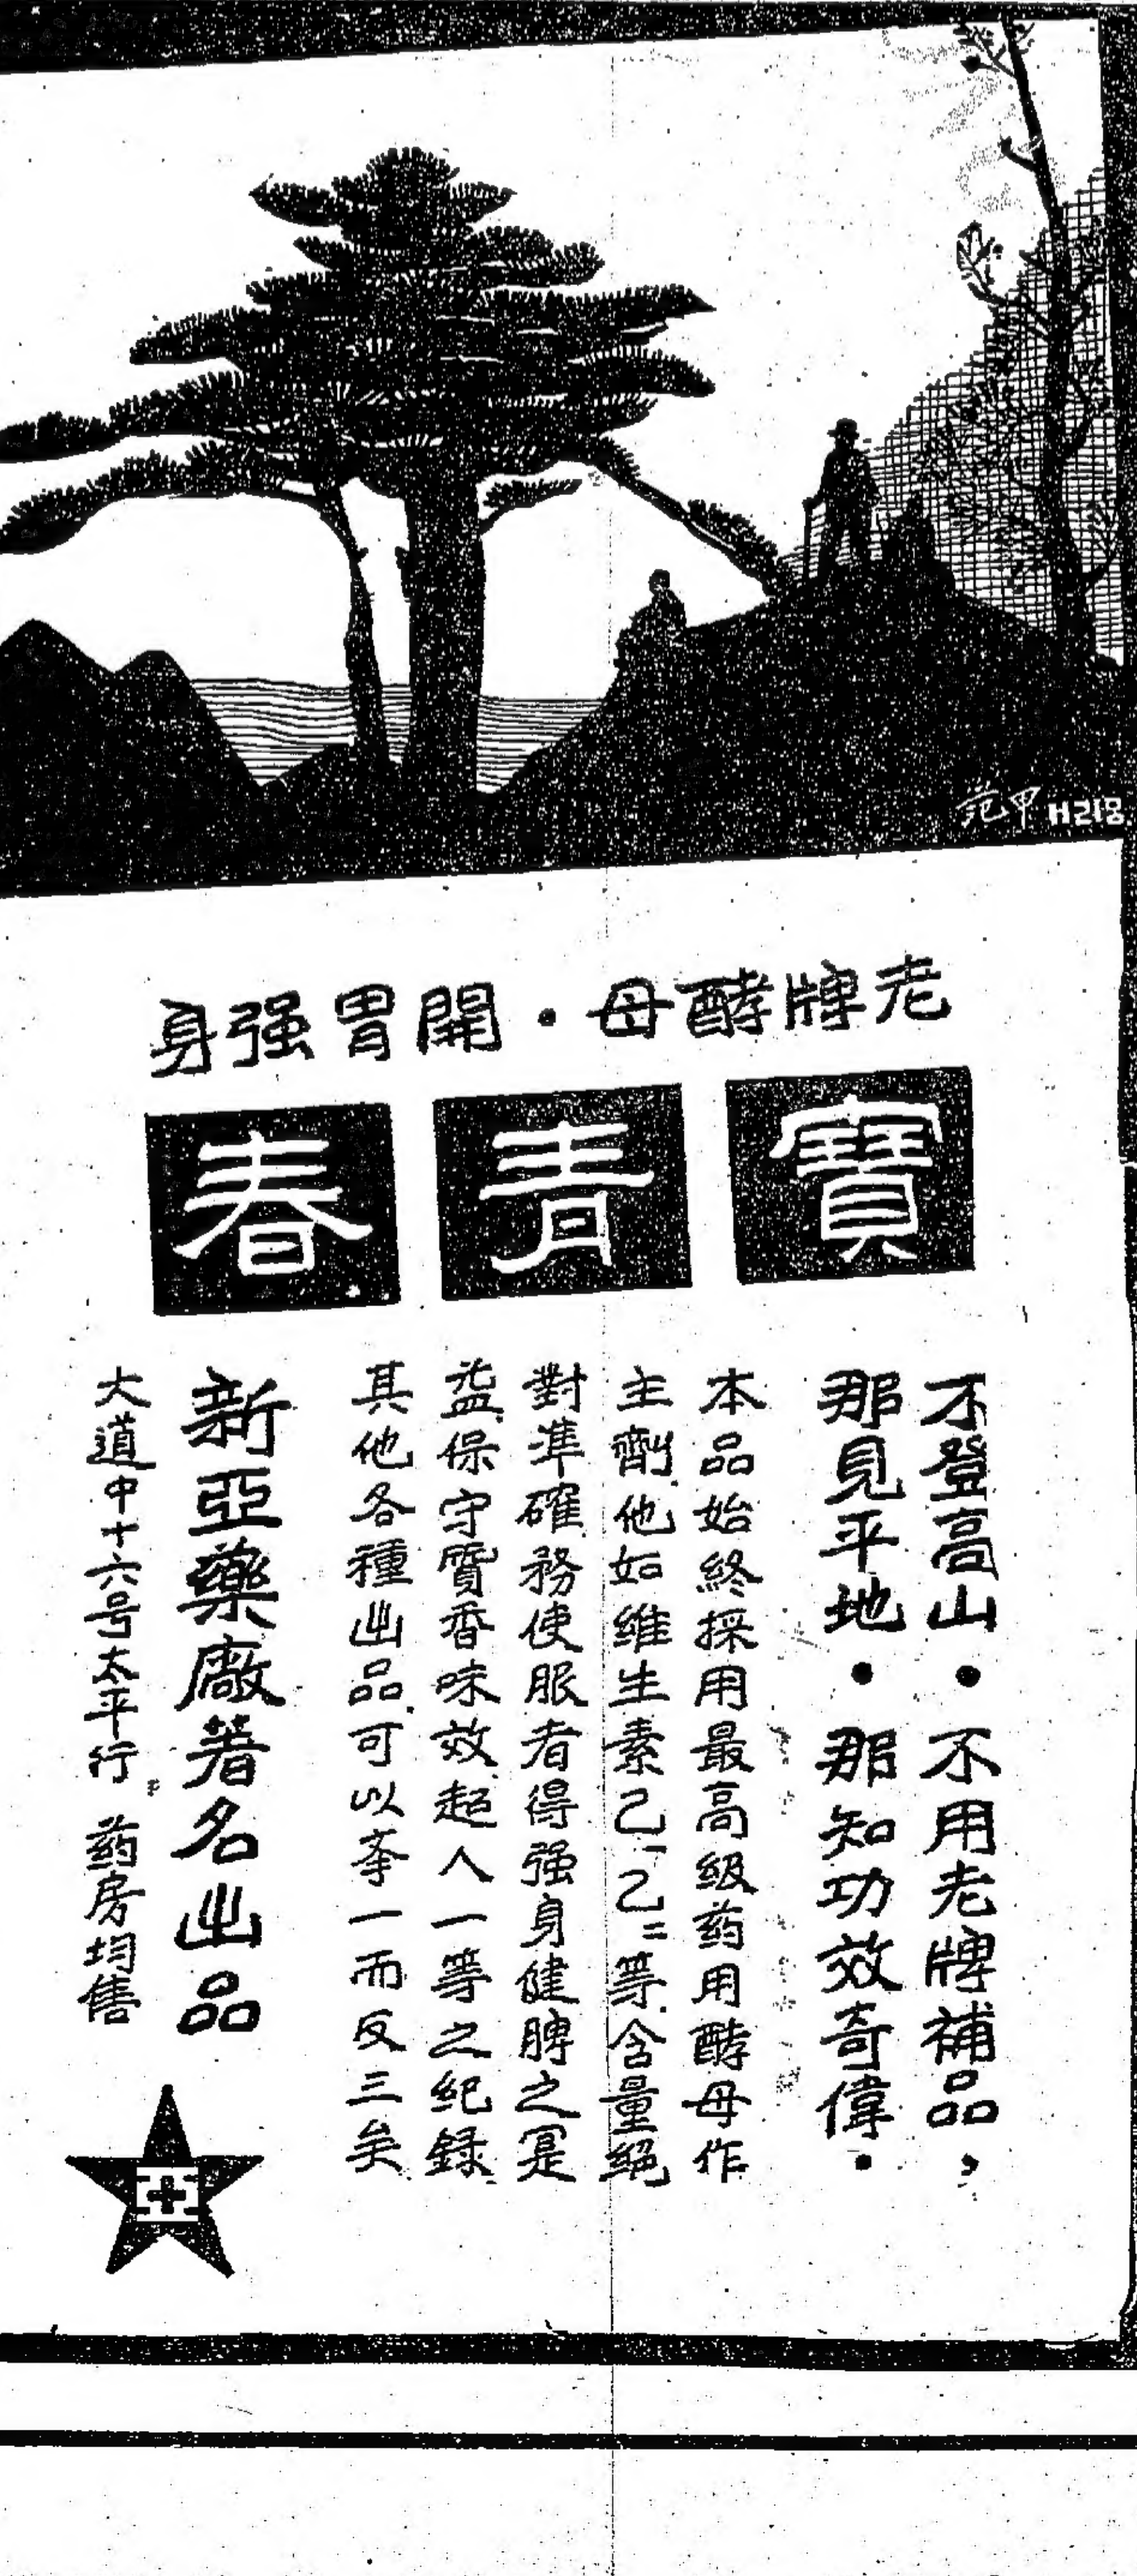 范甲 H218
老牌酵母·開胃强身
寶青春
不登高山·不用老牌補品,
那見平地·那知功效奇偉·
本品始終採用最高級药用酵母作
主劑他如维生素乙一乙二等含量絕
對準確務使服者得强身健脾之寔
益保守質香味效超人一等之纪錄
其他各種出品可以举一而反三矣
新亞藥廠著名出品
大道中十六号太平行 药房均售
亞